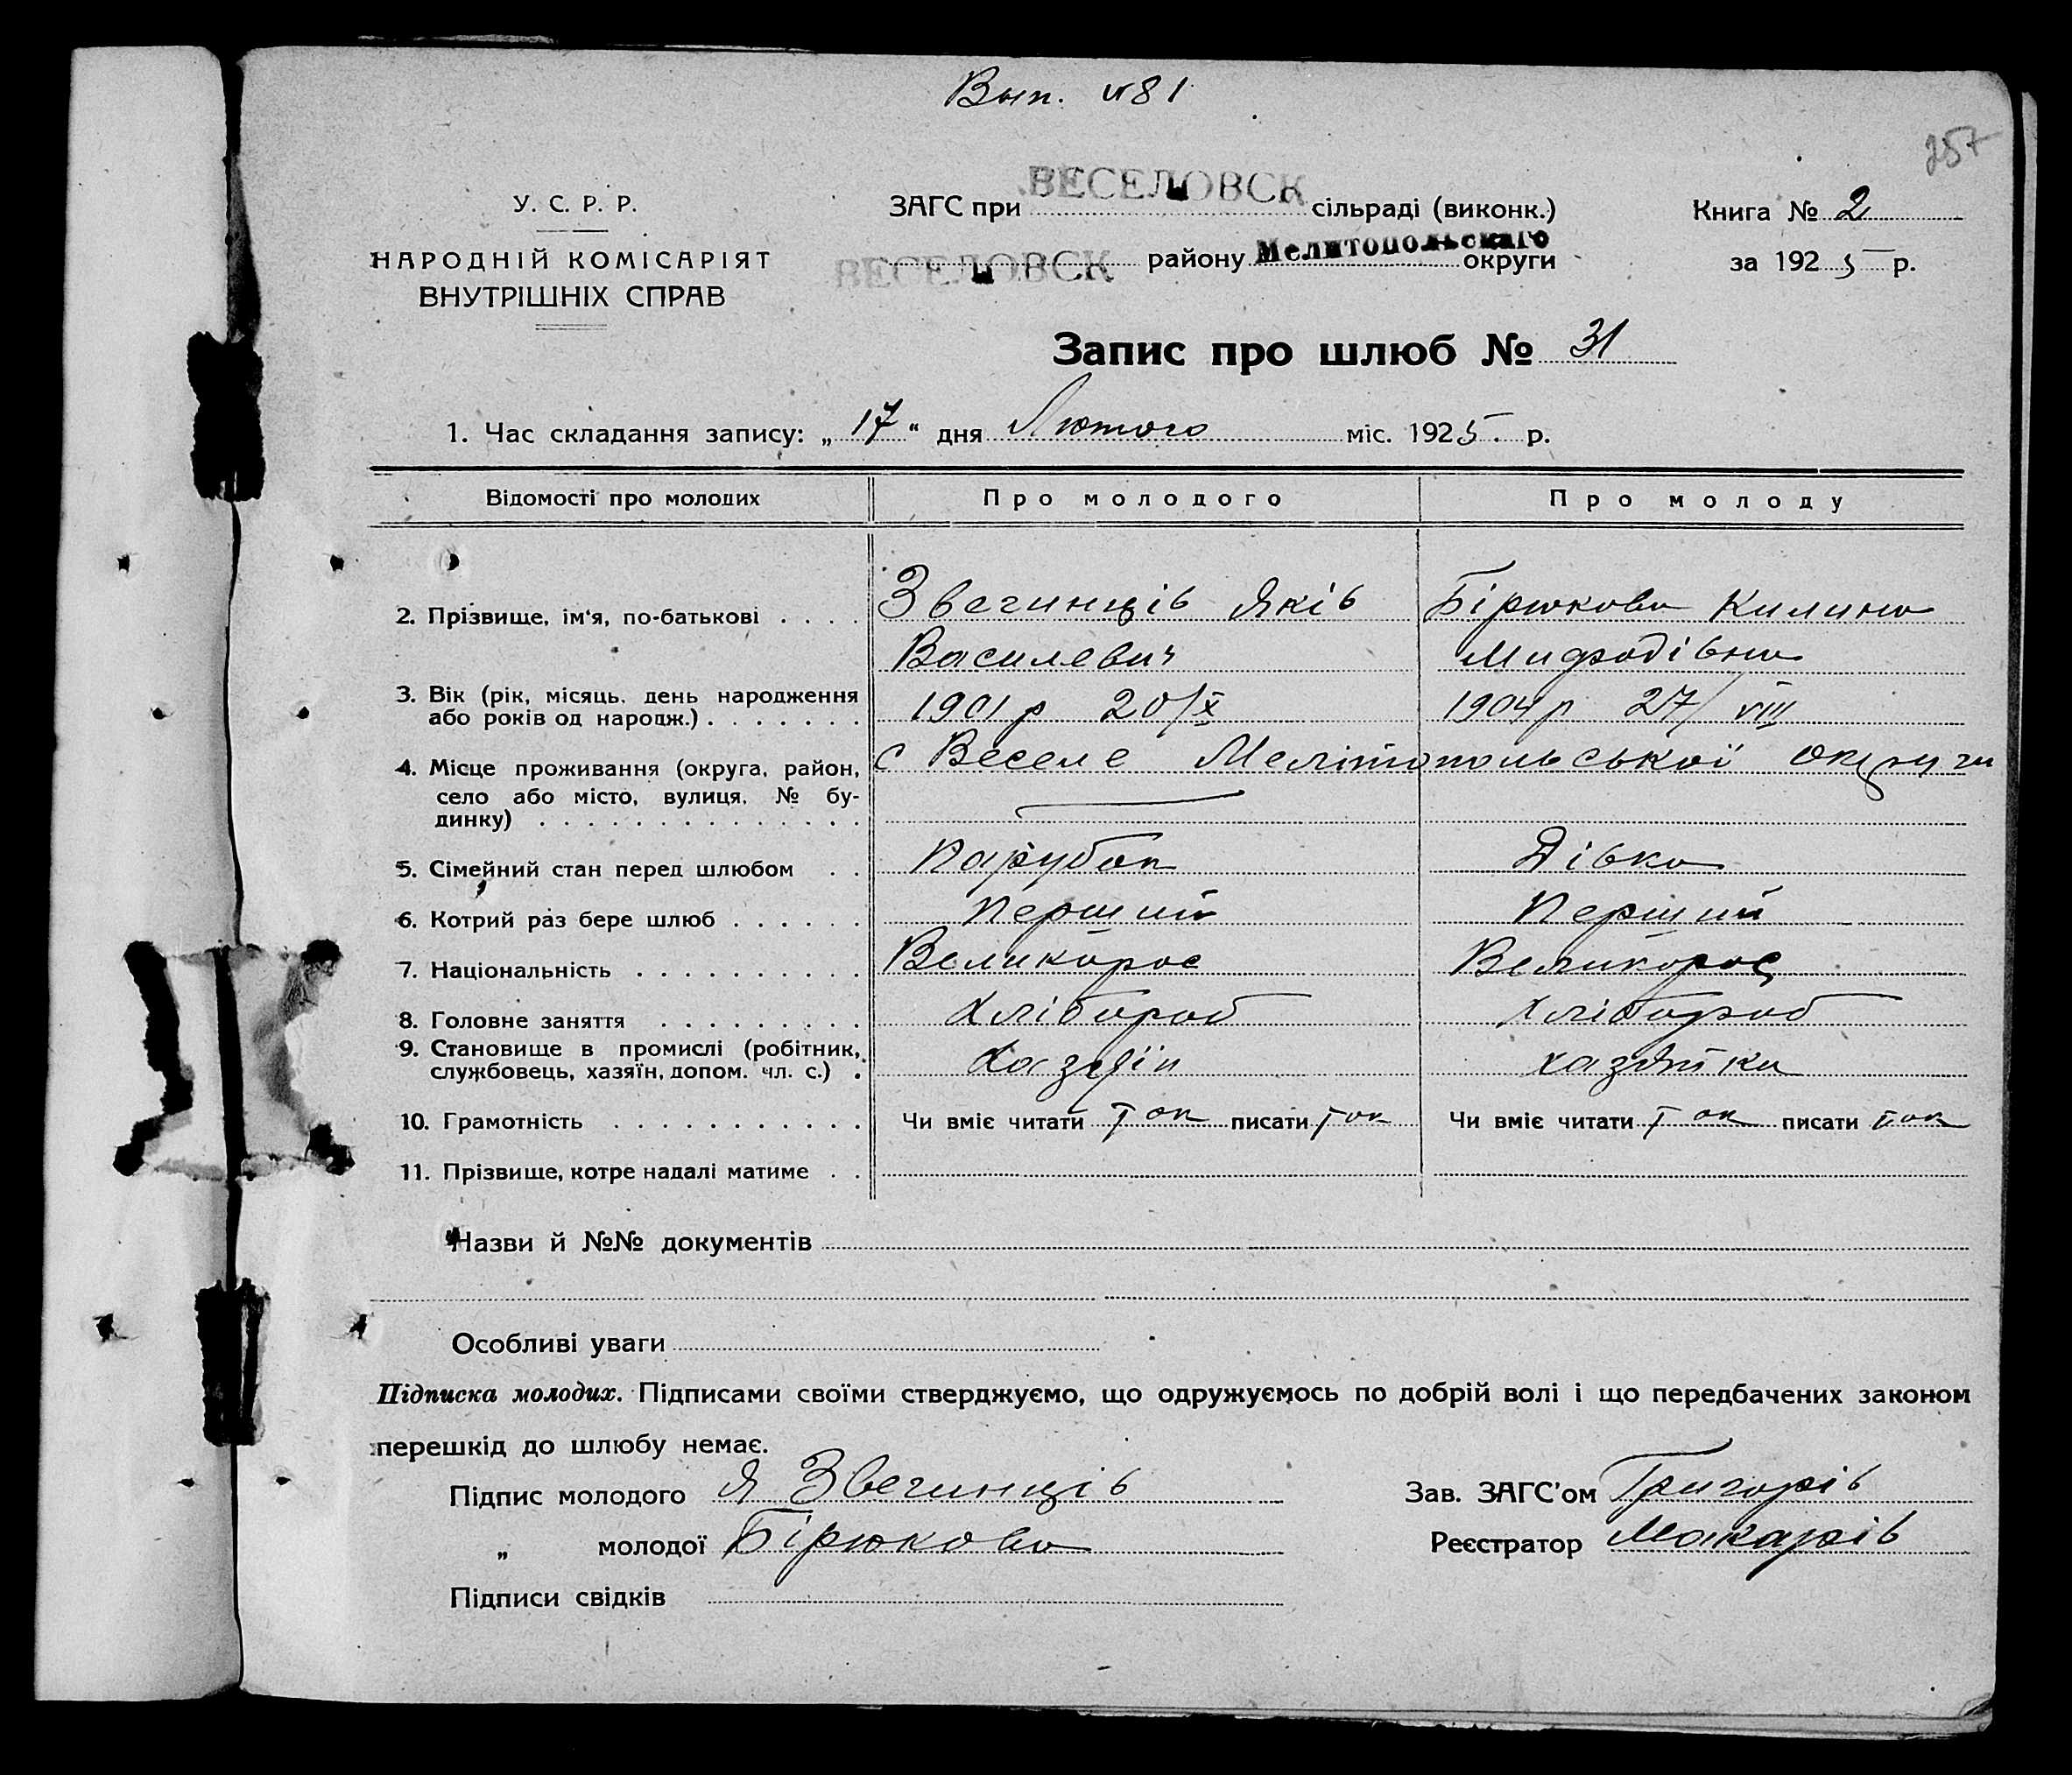 Вып. №81
257
У. С. Р. Р.
НАРОДНІЙ КОМІСАРІЯТ
ВНУТРІШНІХ СПРАВ
ЗАГС при ВЕСЕЛОВСК сільраді (виконк.)
ВЕСЕЛОВСК району Мелитопольскаго округи
Книга № 2
за 1925 р.
Запис про шлюб № 31
1. Час складання запису: „ 17 “ дня Лютого міс. 1925. р.
Відомості про молодих Про молодого Про молоду
2. Прізвище, ім'я, по-батькові . . . . Звегинців Яків Бірюкова Килина
Василевич Мифодівна
3. Вік (рік, місяць, день народження 1901 р 20/X 1904 р 27/VIII
або років од народж.) . . . . . . .
4. Місце проживання (округа, район, с Веселе Мелітопольської округи
село або місто, вулиця, № бу-
динку) . . . . . . . . . . . . . .
5. Сімейний стан перед шлюбом . . Парубок Дівка
6. Котрий раз бере шлюб . . . . . . Перший Перший
7. Національність . . . . . . . . . . Великорос Великорос
8. Головне заняття . . . . . . . . . Хлібороб Хлібороб
9. Становище в промислі (робітник, Хазяїн хазяйка
службовець, хазяїн, допом. чл. с.) .
10. Грамотність . . . . . . . . . . . Чи вміє читати Так писати Так Чи вміє читати Так писати Так
11. Прізвище, котре надалі матиме . .
Назви й №№ документів
Особливі уваги
Підписка молодих. Підписами своїми стверджуємо, що одружуємось по добрій волі і що передбачених законом
перешкід до шлюбу немає.
Підпис молодого Я Звегинців
„ молодої Бірюкова
Підписи свідків
Зав. ЗАГС'ом Григорів
Реєстратор Макарів